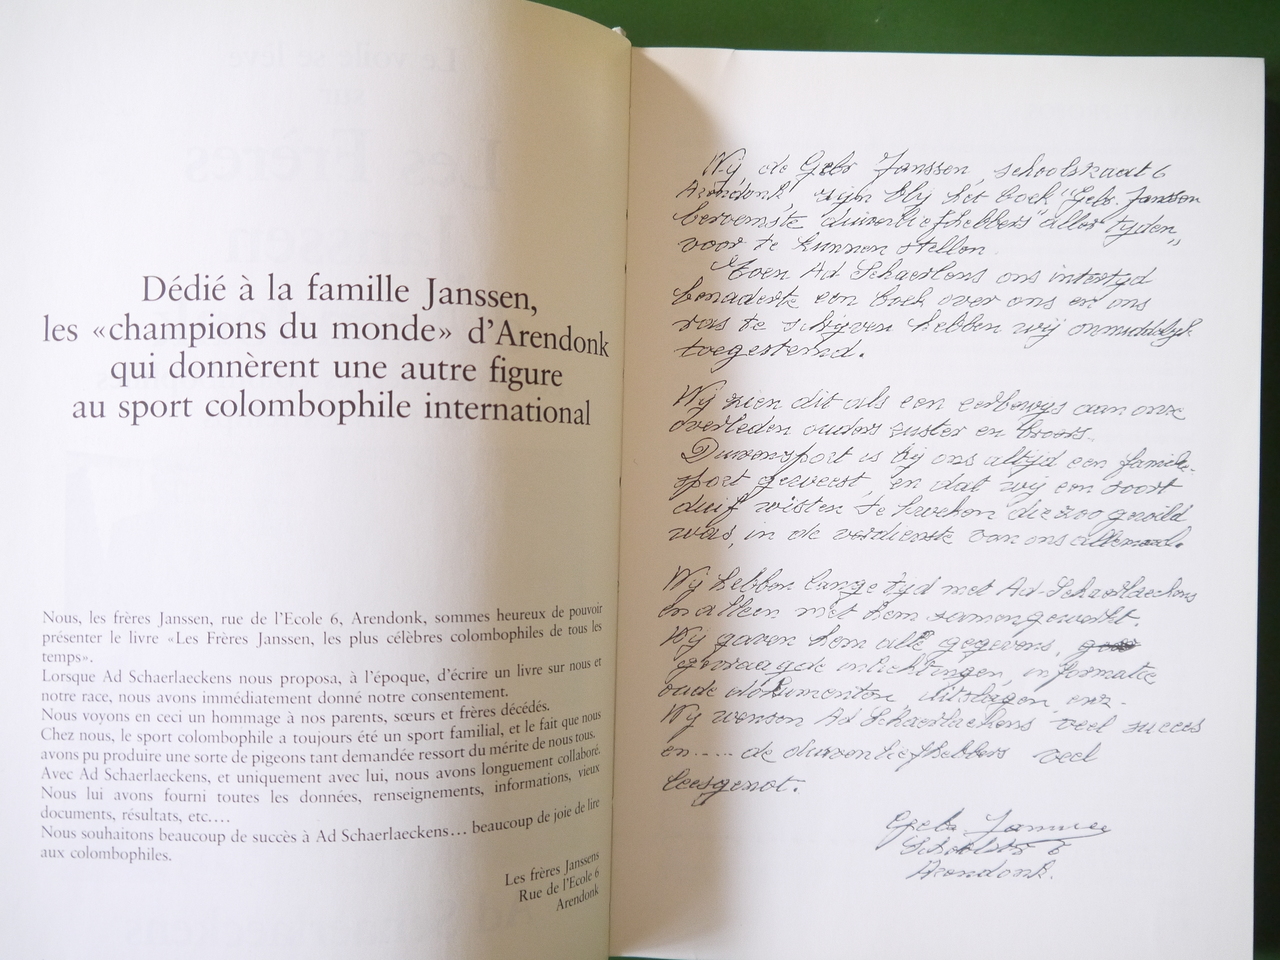 Dédié à la famille Janssen,
les «champions du monde» d'Arendonk
qui donnèrent une autre figure
au sport colombophile international
Nous, les frères Janssen, rue de l'Ecole 6, Arendonk, sommes heureux de pouvoir
présenter le livre «Les Frères Janssen, les plus célèbres colombophiles de tous les
temps».
Lorsque Ad Schaerlaeckens nous proposa, à l'époque, d'écrire un livre sur nous et
notre race, nous avons immédiatement donné notre consentement.
Nous voyons en ceci un hommage à nos parents, sœurs et frères décédés.
Chez nous, le sport colombophile a toujours été un sport familial, et le fait que nous
avons pu produire une sorte de pigeons tant demandée ressort du mérite de nous tous.
Avec Ad Schaerlaeckens, et uniquement avec lui, nous avons longuement collaboré.
Nous lui avons fourni toutes les données, renseignements, informations, vieux
documents, résultats, etc.…
Nous souhaitons beaucoup de succès à Ad Schaerlaeckens… beaucoup de joie de lire
aux colombophiles.
Les frères Janssens
Rue de l'Ecole 6
Arendonk
Wij, de Gebr Janssen, schoolstraat 6
Arendonk, zijn blij het boek "Gebr. Janssen
beroemste duivenliefhebbers" aller tijden"
voor te kunnen stellen.
Toen Ad Schaerlens ons intertijd
benaderte een boek over ons en ons
ras te schijven hebben wij onmiddelijk
toegestemd.
Wij zien dit als een eerbewys aan onze
overleden ouders zuster en broers.
Duivensport is bij ons altijd een familie-
sport geweest, en dat wij een soort
duif wisten te kweken die zoo gewild
was, in de verdienste van ons allemaal.
Wij hebben lange tyd met Ad-Schaerlaeckens
en alleen met hem samengewerkt.
Wij gaven hem alle gegevens,
gevraagde inlichtingen, informatie
oude dokumenten, uitslagen, enz.
Wij wensen Ad Schaerlaeckens veel succes
en..... de duivenliefhebbers veel
leesgenot.
Gebr Janssen
Schoolstr 6
Arendonk.